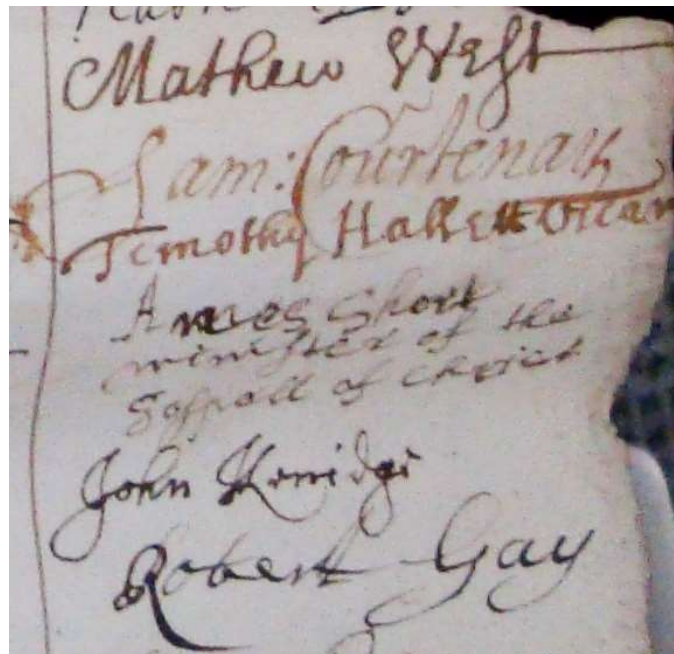 Mathew West
Sam: Courtenay
Timothy Hallett Vicar
Ames Short
minister of the
Gospell of Christ
John
Robert Gay